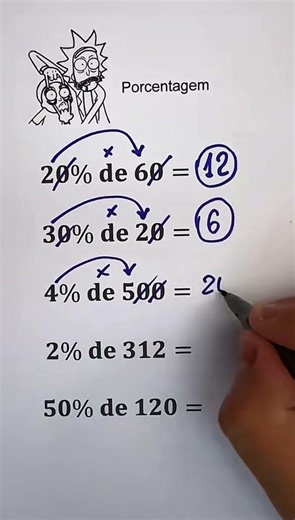 Porcentagem
20% de 60 = 12
30% de 20 = 6
4% de 500 = 20
2% de 312 =
50% de 120 =